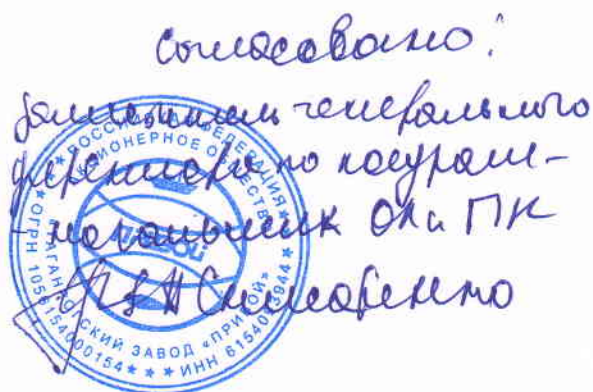 согласовано:
Заместитель генерального
директора по кадрам –
- начальник ОК и ПК
В Н Симоненко
★ РОССИЙСКАЯ ФЕДЕРАЦИЯ ★
АКЦИОНЕРНОЕ ОБЩЕСТВО
ТАГАНРОГСКИЙ ЗАВОД «ПРИБОЙ»
ОГРН 1056154000154 ★ ★ ★ ИНН